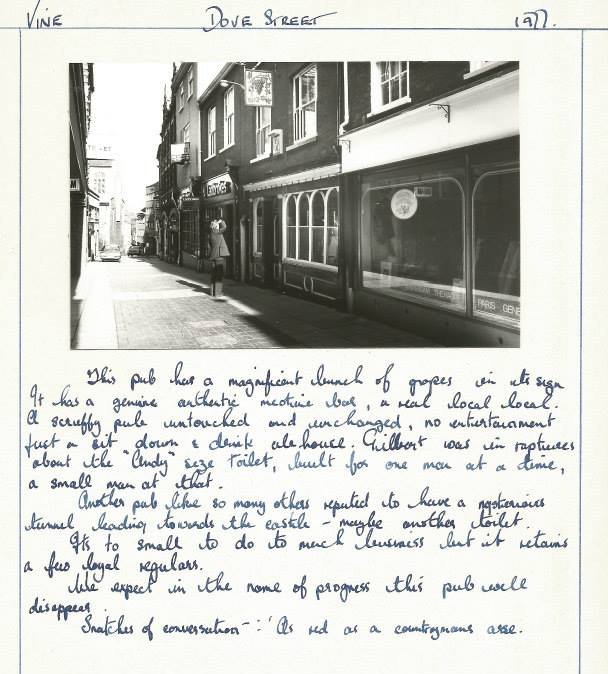 VINE DOVE STREET 1977.
PARIS GENE
This pub has a magnificent bunch of grapes in its sign
It has a genuine authentic nicotine bar, a real local local.
A scruffy pub untouched and unchanged, no entertainment
just a sit down & drink alehouse. Gilbert was in raptures
about the "Andy" size toilet, built for one man at a time,
a small man at that.
Another pub like so many others reputed to have a mysterious
tunnel leading towards the castle - maybe another toilet.
Its to small to do to much business but it retains
a few loyal regulars.
We expect in the name of progress this pub will
disappear.
Snatches of conversation - : 'As red as a countrymans arse.